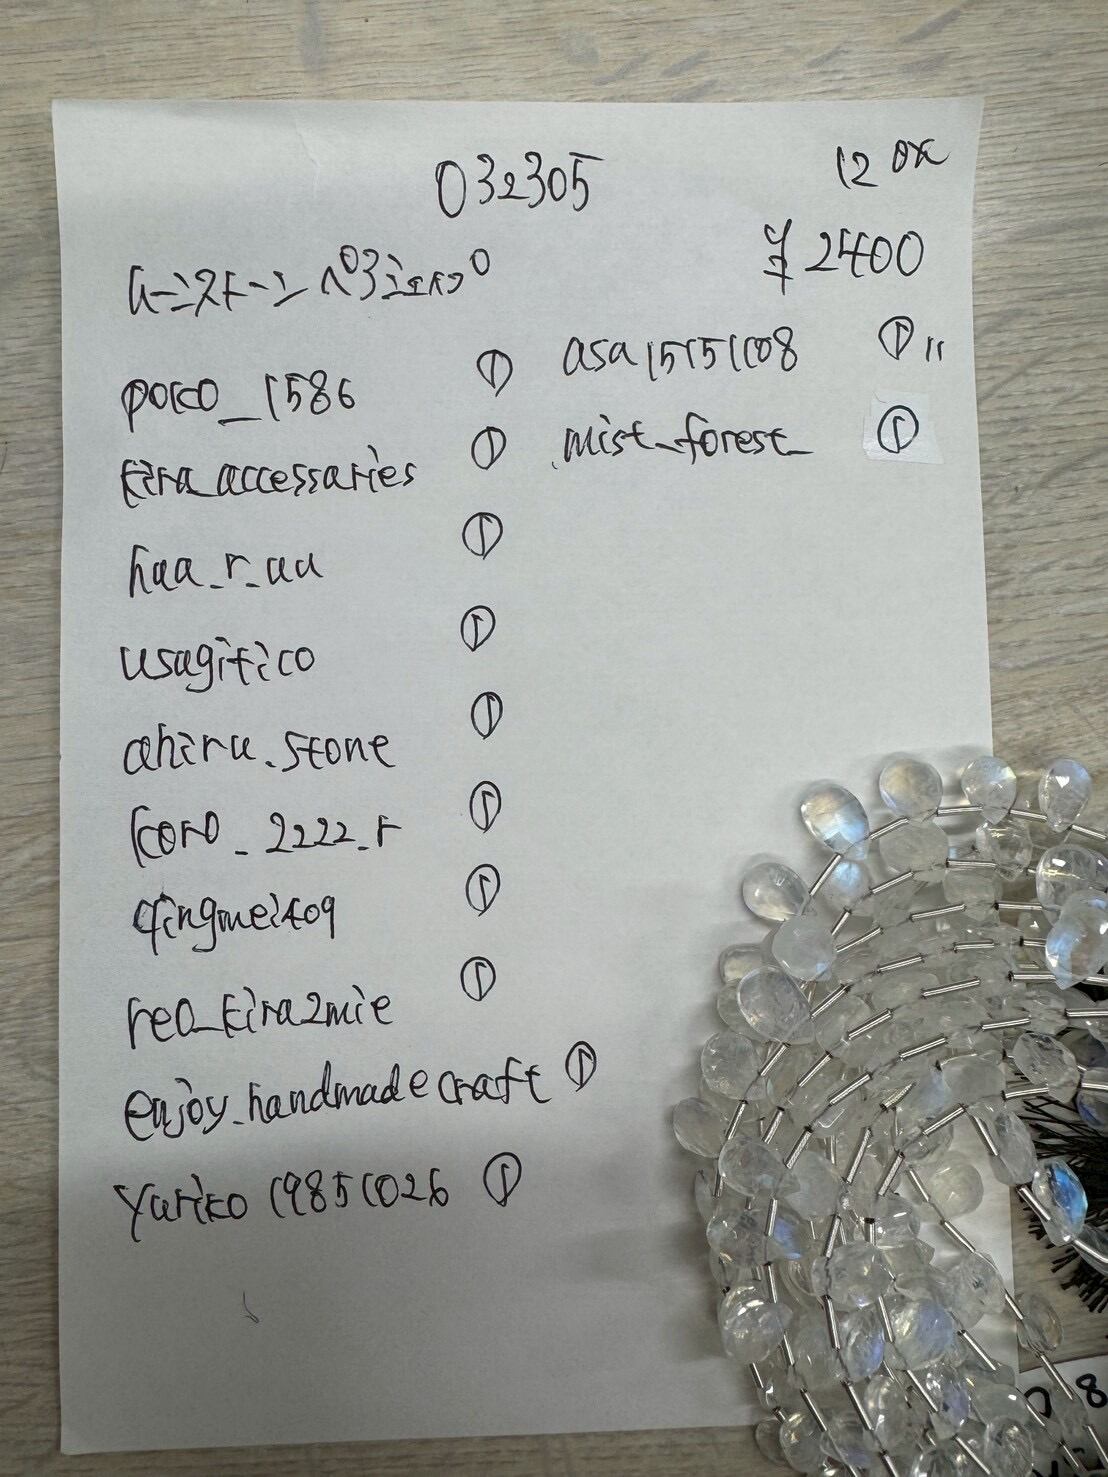 032305
12 ox
¥2400
ムーンストーン ペアシェイプ
poko_1586 ①
kira_accessaries ①
haa_r_aa ①
usagitico ①
ahiru.stone ①
koro_2222_r ①
qingmei409 ①
reo_kira2mie ①
enjoy.handmadecraft ①
yuriko19851026 ①
asa15151108 ①
mist_forest_ ①